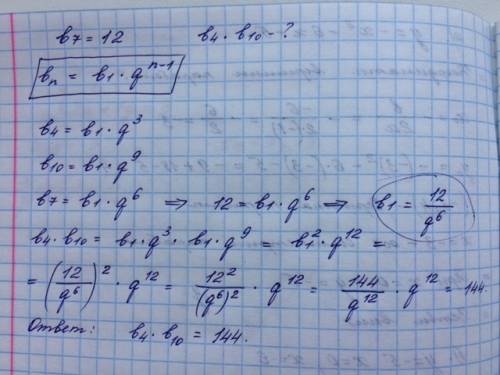 b7 = 12 b4 · b10 - ?
bn = b1 · q^n-1
b4 = b1 · q^3
b10 = b1 · q^9
b7 = b1 · q^6 ⇒ 12 = b1 · q^6 ⇒ b1 = 12/q^6
b4 · b10 = b1 · q^3 · b1 · q^9 = b1^2 · q^12 =
= (12/q^6)^2 · q^12 = 12^2/(q^6)^2 · q^12 = 144/q^12 · q^12 = 144.
Ответ: b4 · b10 = 144.